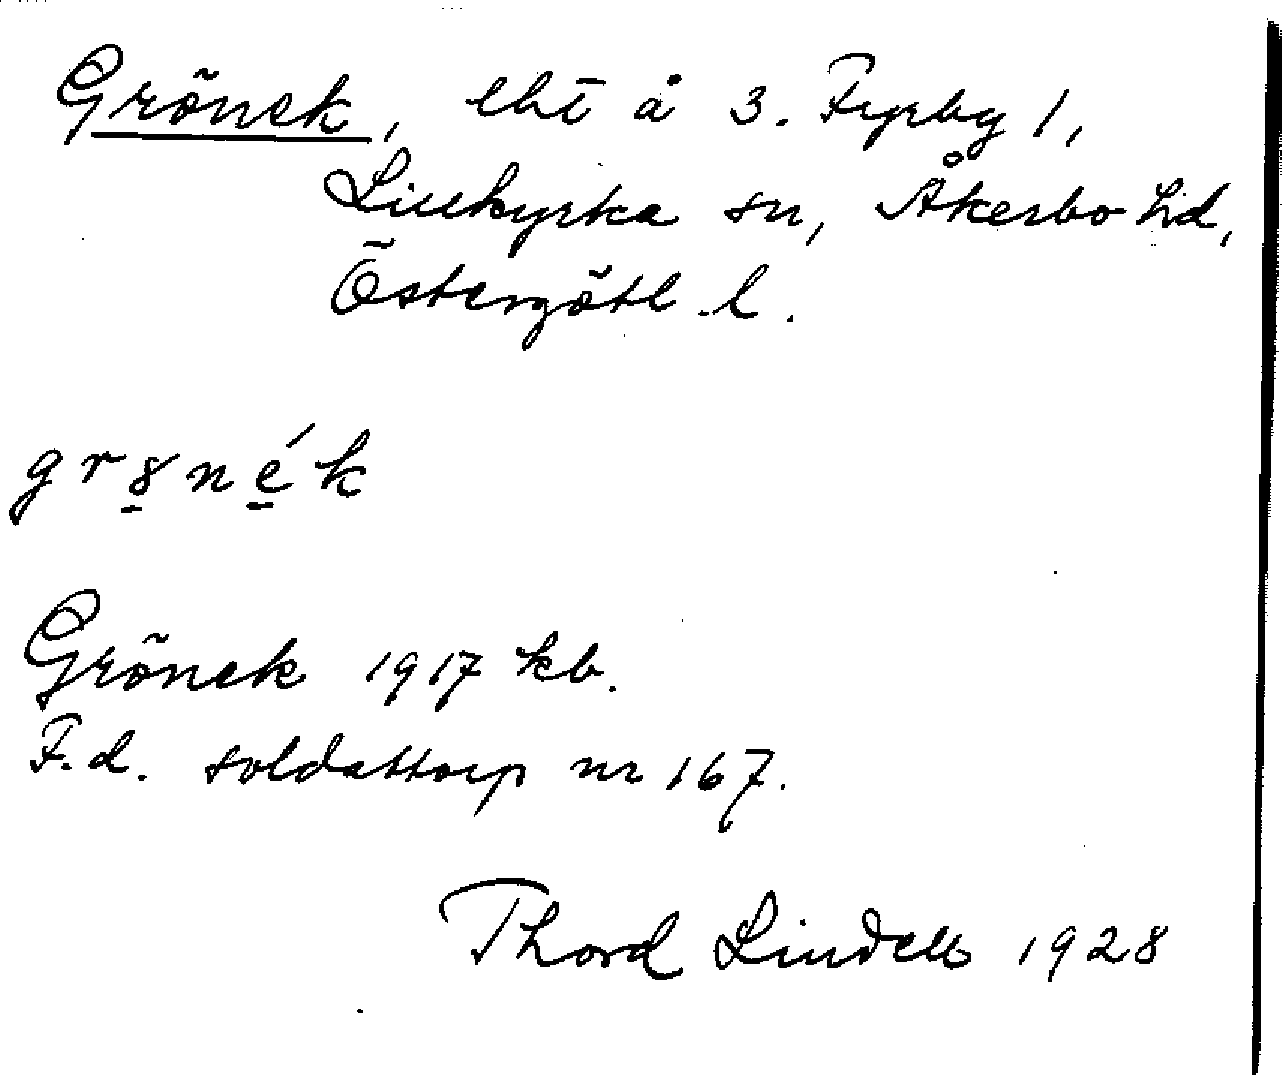 Grönek, lht å 3. Fyrby 1,
Lillkyrka sn, Åkerbo hd,
Östergötl. l.
gr8nék
Grönek 1917 kb.
F.d. soldattorp nr 167.
Thord Lindell 1928